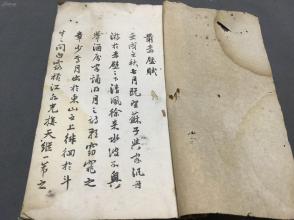 前赤壁賦
壬戌之秋七月既望蘇子與客汎舟
游於赤壁之下清風徐來水波不興
舉酒屬客誦明月之詩歌窈窕之
章少焉月出於東山之上徘徊於斗
牛之間白露橫江水光接天縱一葦之